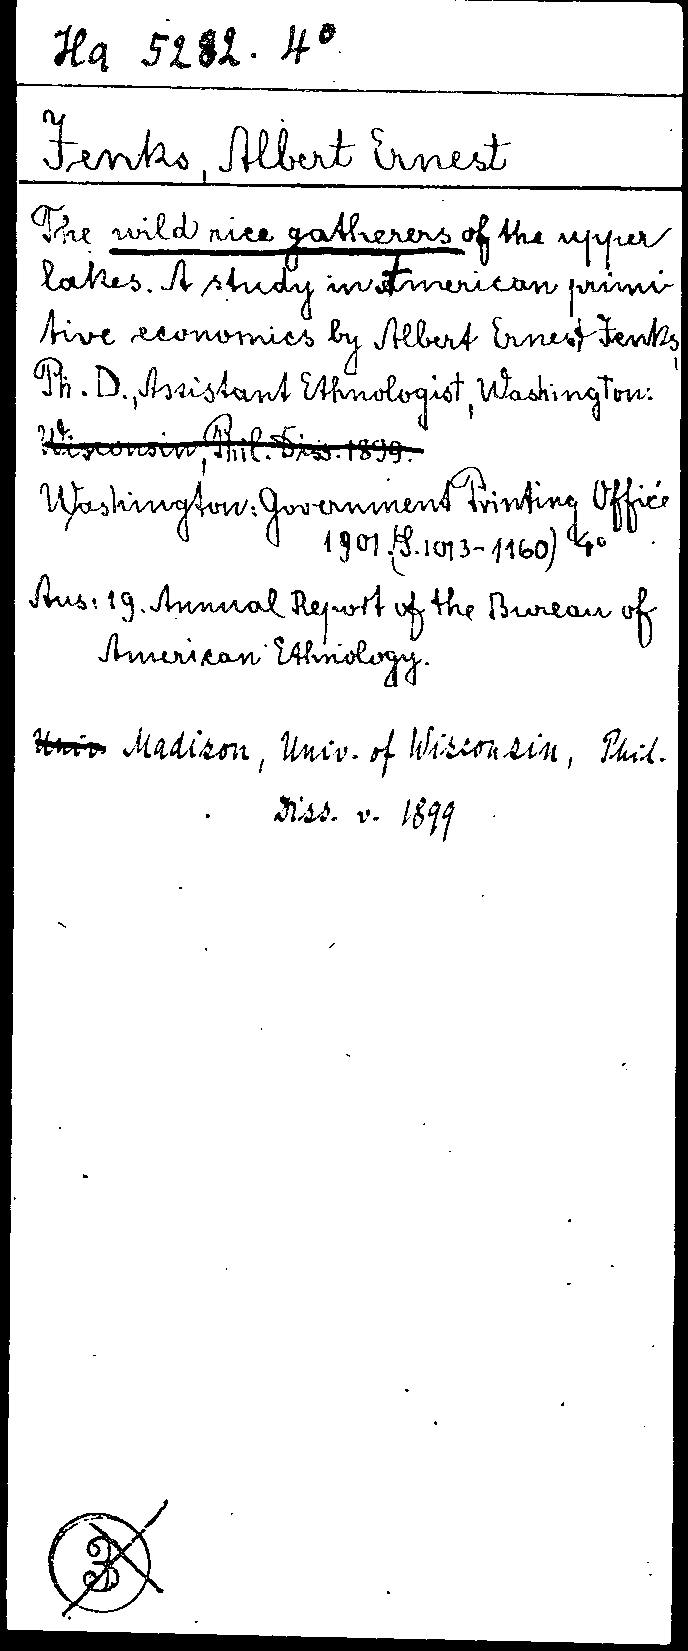 Ha 5282. 4°
Jenks, Albert Ernest
The wild rice gatherers of the upper
lakes. A study in American primi
tive economics by Albert Ernest Jenks,
Ph. D., Assistant Ethnologist, Washington:
Wisconsin, Phil. Diss. 1899.
Washington: Government Printing Office
1901. (S. 1013-1160) 4°
Aus: 19. Annual Report of the Bureau of
American Ethnology.
Univ. Madison, Univ. of Wisconsin, Phil.
Diss. v. 1899
3